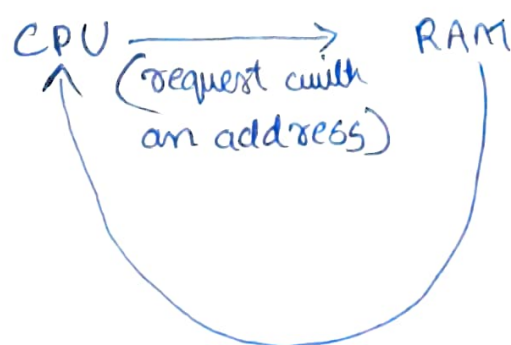 CPU RAM
(request with
an address)